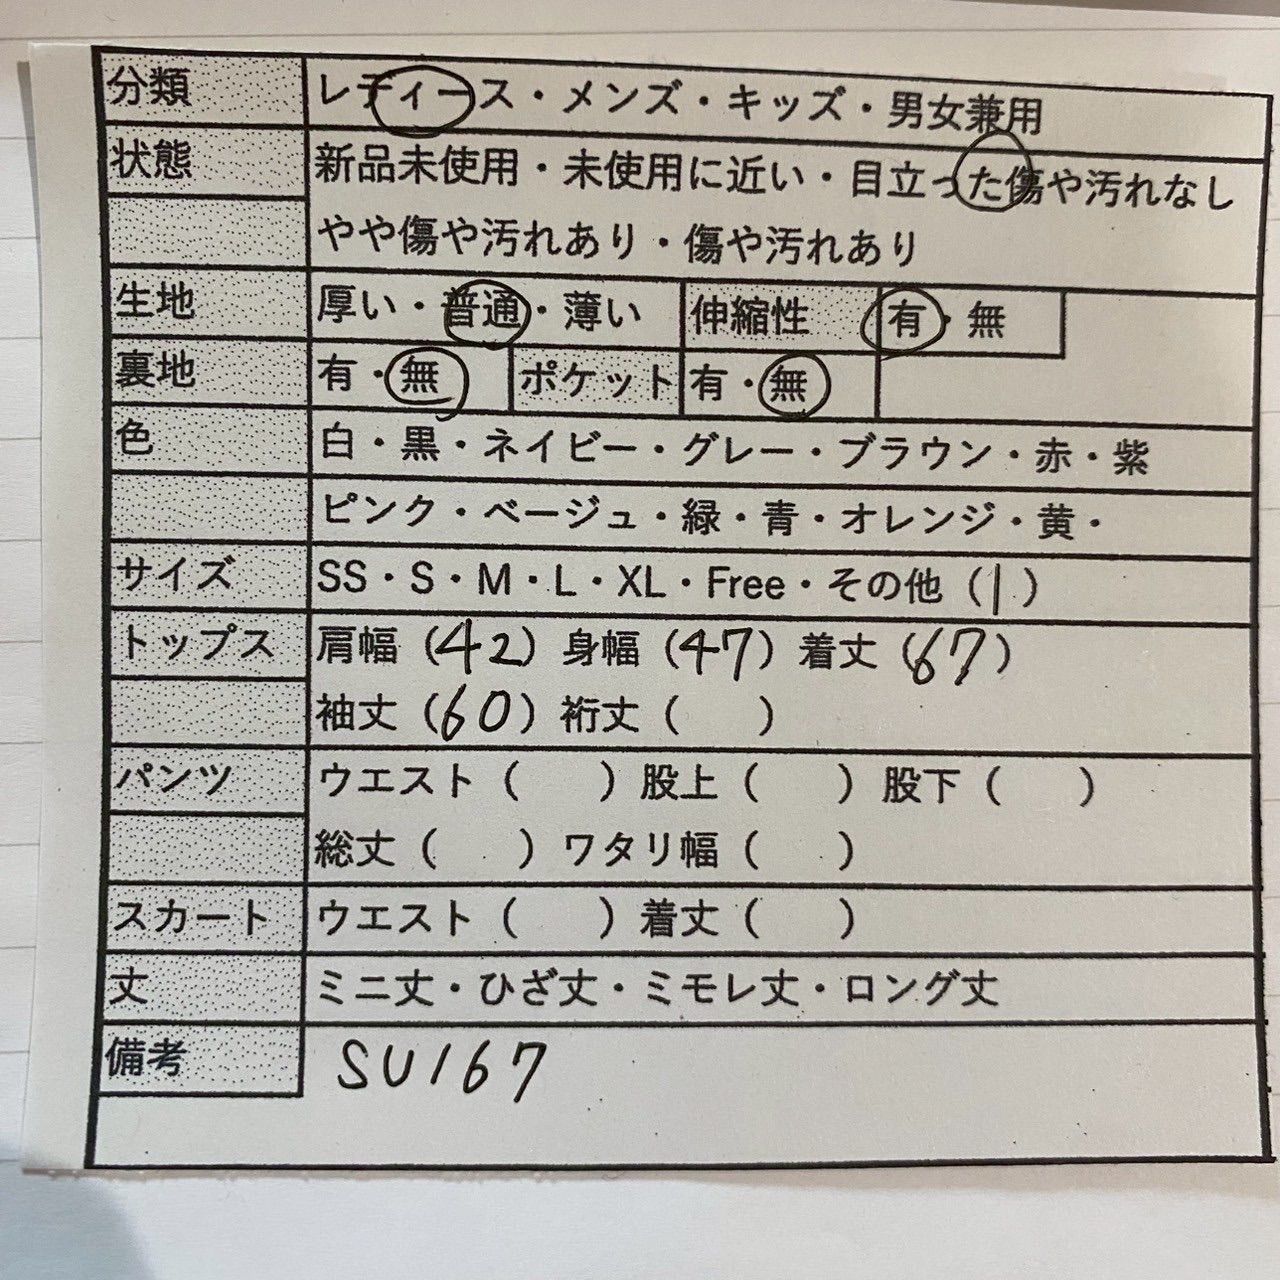 分類 レディース・メンズ・キッズ・男女兼用
状態 新品未使用・未使用に近い・目立った傷や汚れなし
やや傷や汚れあり・傷や汚れあり
生地 厚い・普通・薄い 伸縮性 有・無
裏地 有・無 ポケット 有・無
色 白・黒・ネイビー・グレー・ブラウン・赤・紫
ピンク・ベージュ・緑・青・オレンジ・黄・
サイズ SS・S・M・L・XL・Free・その他（1）
トップス 肩幅（42）身幅（47）着丈（67）
袖丈（60）裄丈（　）
パンツ ウエスト（　）股上（　）股下（　）
総丈（　）ワタリ幅（　）
スカート ウエスト（　）着丈（　）
丈 ミニ丈・ひざ丈・ミモレ丈・ロング丈
備考 SU167